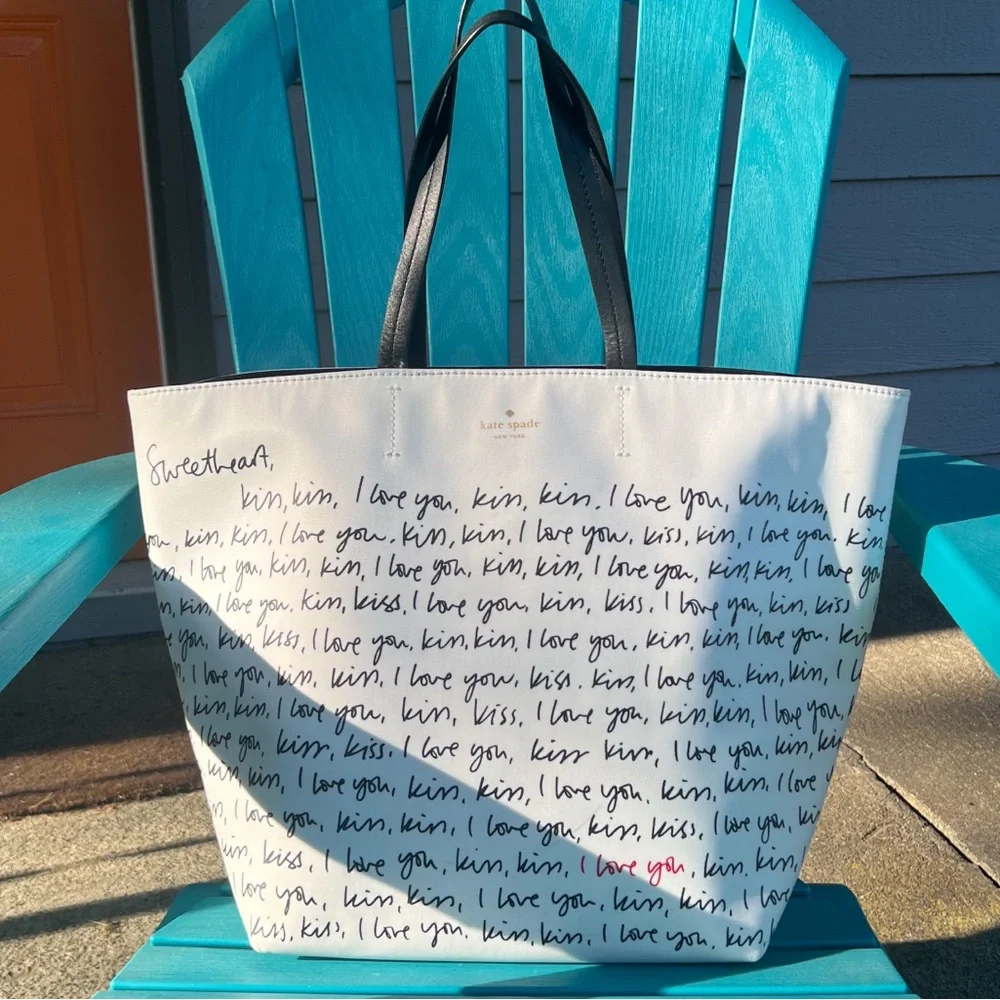 kate spade
NEW YORK
Sweetheart,
kiss, kiss, I love you, kiss, kiss. I love you, kiss, kiss, I love
you, kiss, kiss, I love you. kiss, kiss, I love you. kiss, kiss, I love you. kiss
I love you, kiss, kiss, I love you, kiss, kiss, I love you, kiss, kiss, I love you
kiss, I love you. kiss, kiss, I love you, kiss, kiss. I love you, kiss, kiss
you, kiss, kiss, I love you, kiss, kiss, I love you, kiss, kiss, I love you. kiss
I love you, kiss, kiss, I love you, kiss. kiss, I love you. kiss, kiss, I
kiss, kiss, I love you, kiss, kiss, I love you, kiss, kiss, I love you,
love you, kiss, kiss. I love you, kiss kiss, I love you, kiss, kiss
kiss, kiss, I love you, kiss, kiss, I love you. kiss, kiss, I love
I love you, kiss, kiss, I love you, kiss, kiss, I love you, ki
kiss, kiss, I love you, kiss, kiss, I love you, kiss. kiss,
I love you, kiss, kiss, I love you, kiss, kiss, I love
kiss, kiss, I love you. kiss, kiss, I love you. kiss,